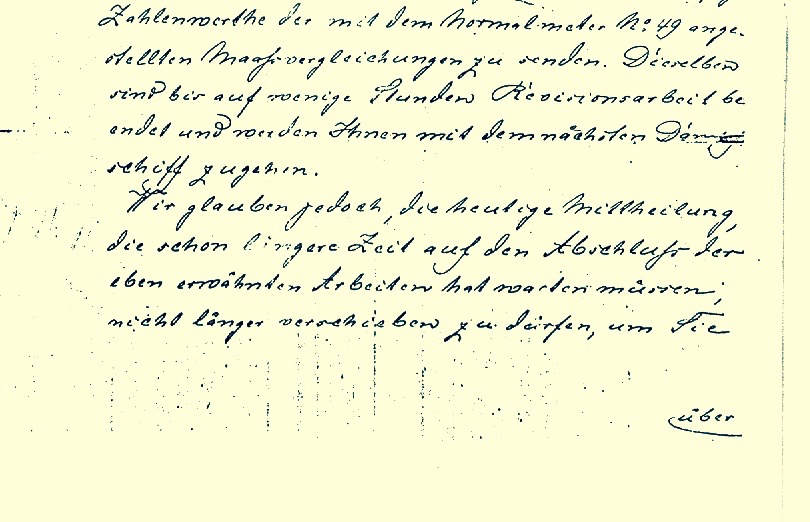 Zahlenwerthe der mit dem Normalmeter No 49 ange-
stellten Maassvergleichungen zu senden. Dieselben
sind bis auf wenige Stunden Revisionsarbeit be
endet und werden Ihnen mit dem nächsten
schiff zugehen.
Wir glauben jedoch, die heutige Mittheilung,
die schon längere Zeit auf den Abschluss der
eben erwähnten Arbeiten hat warten müssen,
nicht länger verschieben zu dürfen, um Sie
über